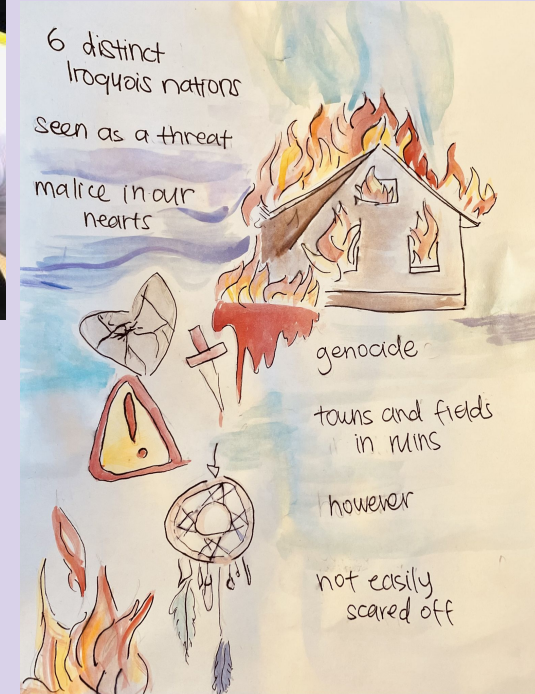 6 distinct
Iroquois nations
seen as a threat
malice in our
hearts
genocide
towns and fields
in ruins
however
not easily
scared off